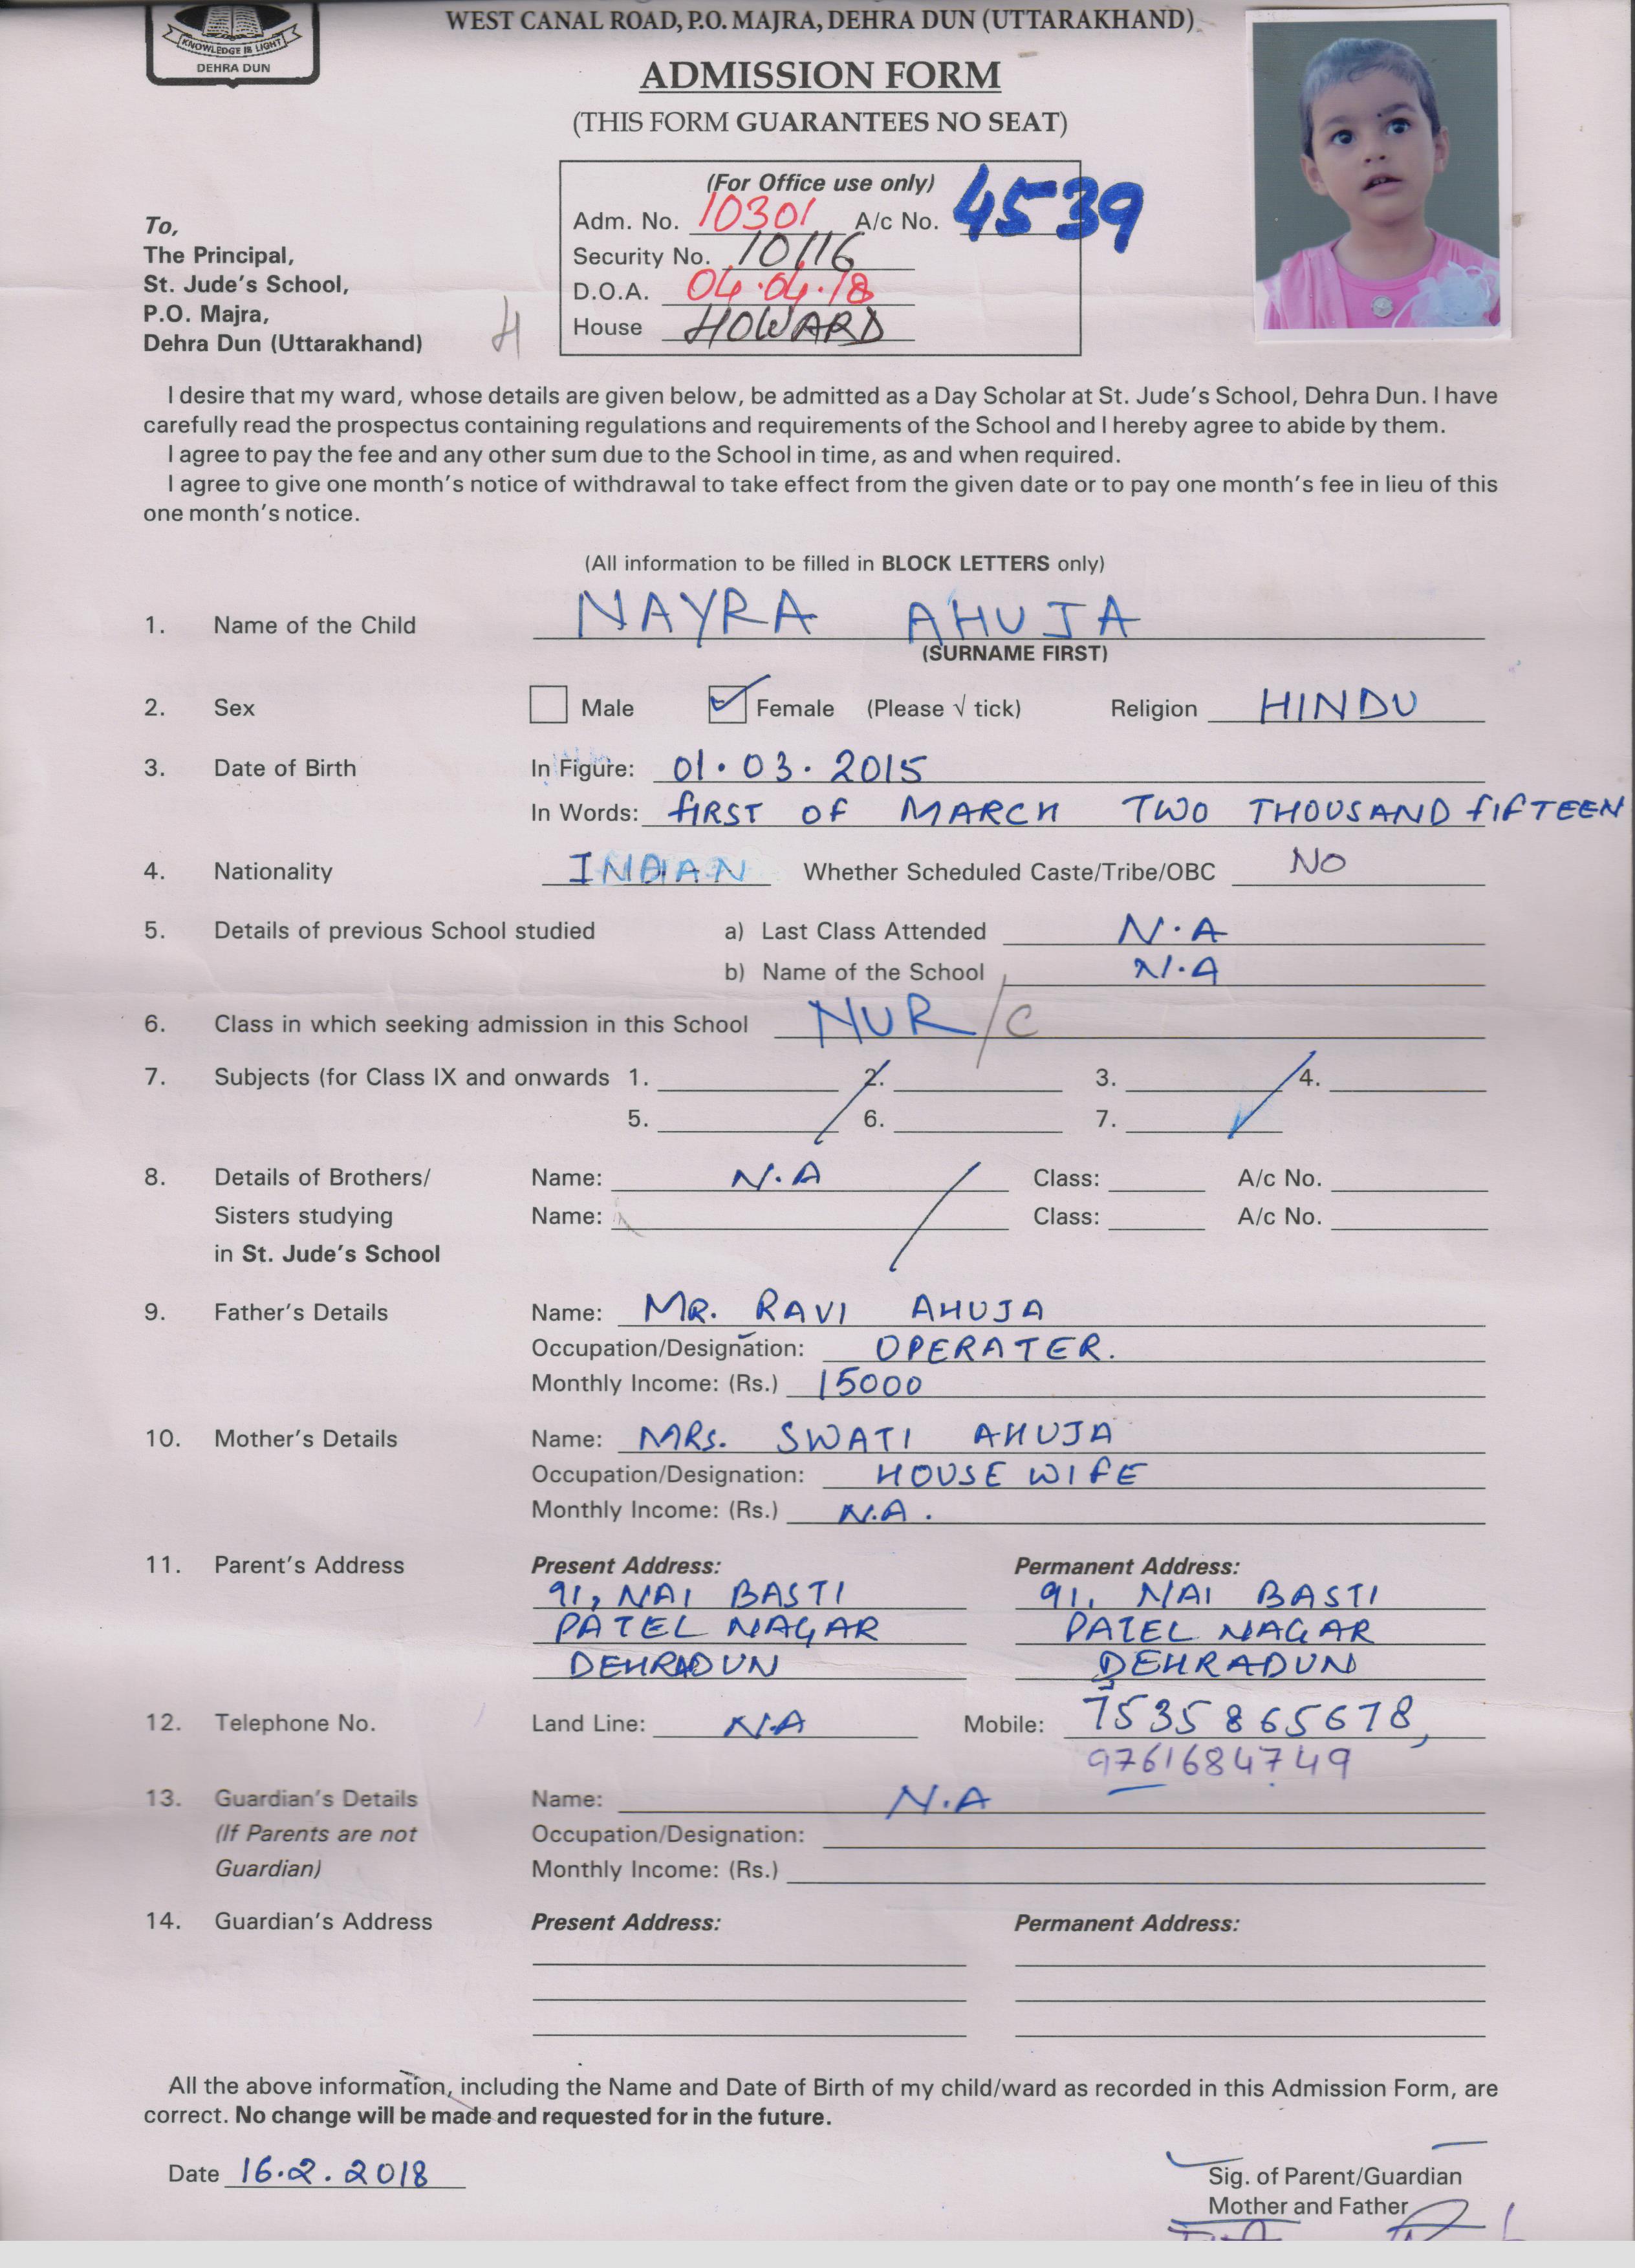 WEST CANAL ROAD, P.O. MAJRA, DEHRA DUN (UTTARAKHAND)
KNOWLEDGE IS LIGHT
DEHRA DUN
ADMISSION FORM
(THIS FORM GUARANTEES NO SEAT)
(For Office use only)
Adm. No. 10301 A/c No. 4539
Security No. 10116
D.O.A. 04.04.18
House HOWARD
To,
The Principal,
St. Jude's School,
P.O. Majra,
Dehra Dun (Uttarakhand)
H
I desire that my ward, whose details are given below, be admitted as a Day Scholar at St. Jude's School, Dehra Dun. I have
carefully read the prospectus containing regulations and requirements of the School and I hereby agree to abide by them.
I agree to pay the fee and any other sum due to the School in time, as and when required.
I agree to give one month's notice of withdrawal to take effect from the given date or to pay one month's fee in lieu of this
one month's notice.
(All information to be filled in BLOCK LETTERS only)
1. Name of the Child NAYRA AHUJA
(SURNAME FIRST)
2. Sex Male Female (Please √ tick) Religion HINDU
3. Date of Birth In Figure: 01.03.2015
In Words: FIRST OF MARCH TWO THOUSAND FIFTEEN
4. Nationality INDIAN Whether Scheduled Caste/Tribe/OBC NO
5. Details of previous School studied a) Last Class Attended N.A
b) Name of the School N.A
6. Class in which seeking admission in this School NUR/C
7. Subjects (for Class IX and onwards 1. 2. 3. 4.
5. 6. 7.
8. Details of Brothers/ Name: N.A Class: A/c No.
Sisters studying Name: Class: A/c No.
in St. Jude's School
9. Father's Details Name: MR. RAVI AHUJA
Occupation/Designation: OPERATER.
Monthly Income: (Rs.) 15000
10. Mother's Details Name: MRS. SWATI AHUJA
Occupation/Designation: HOUSE WIFE
Monthly Income: (Rs.) N.A.
11. Parent's Address Present Address: Permanent Address:
91, NAI BASTI 91, NAI BASTI
PATEL NAGAR PATEL NAGAR
DEHRADUN DEHRADUN
12. Telephone No. Land Line: N.A Mobile: 7535865678,
9761684749
13. Guardian's Details Name: N.A
(If Parents are not Occupation/Designation:
Guardian) Monthly Income: (Rs.)
14. Guardian's Address Present Address: Permanent Address:
All the above information, including the Name and Date of Birth of my child/ward as recorded in this Admission Form, are
correct. No change will be made and requested for in the future.
Date 16.2.2018
Sig. of Parent/Guardian
Mother and Father